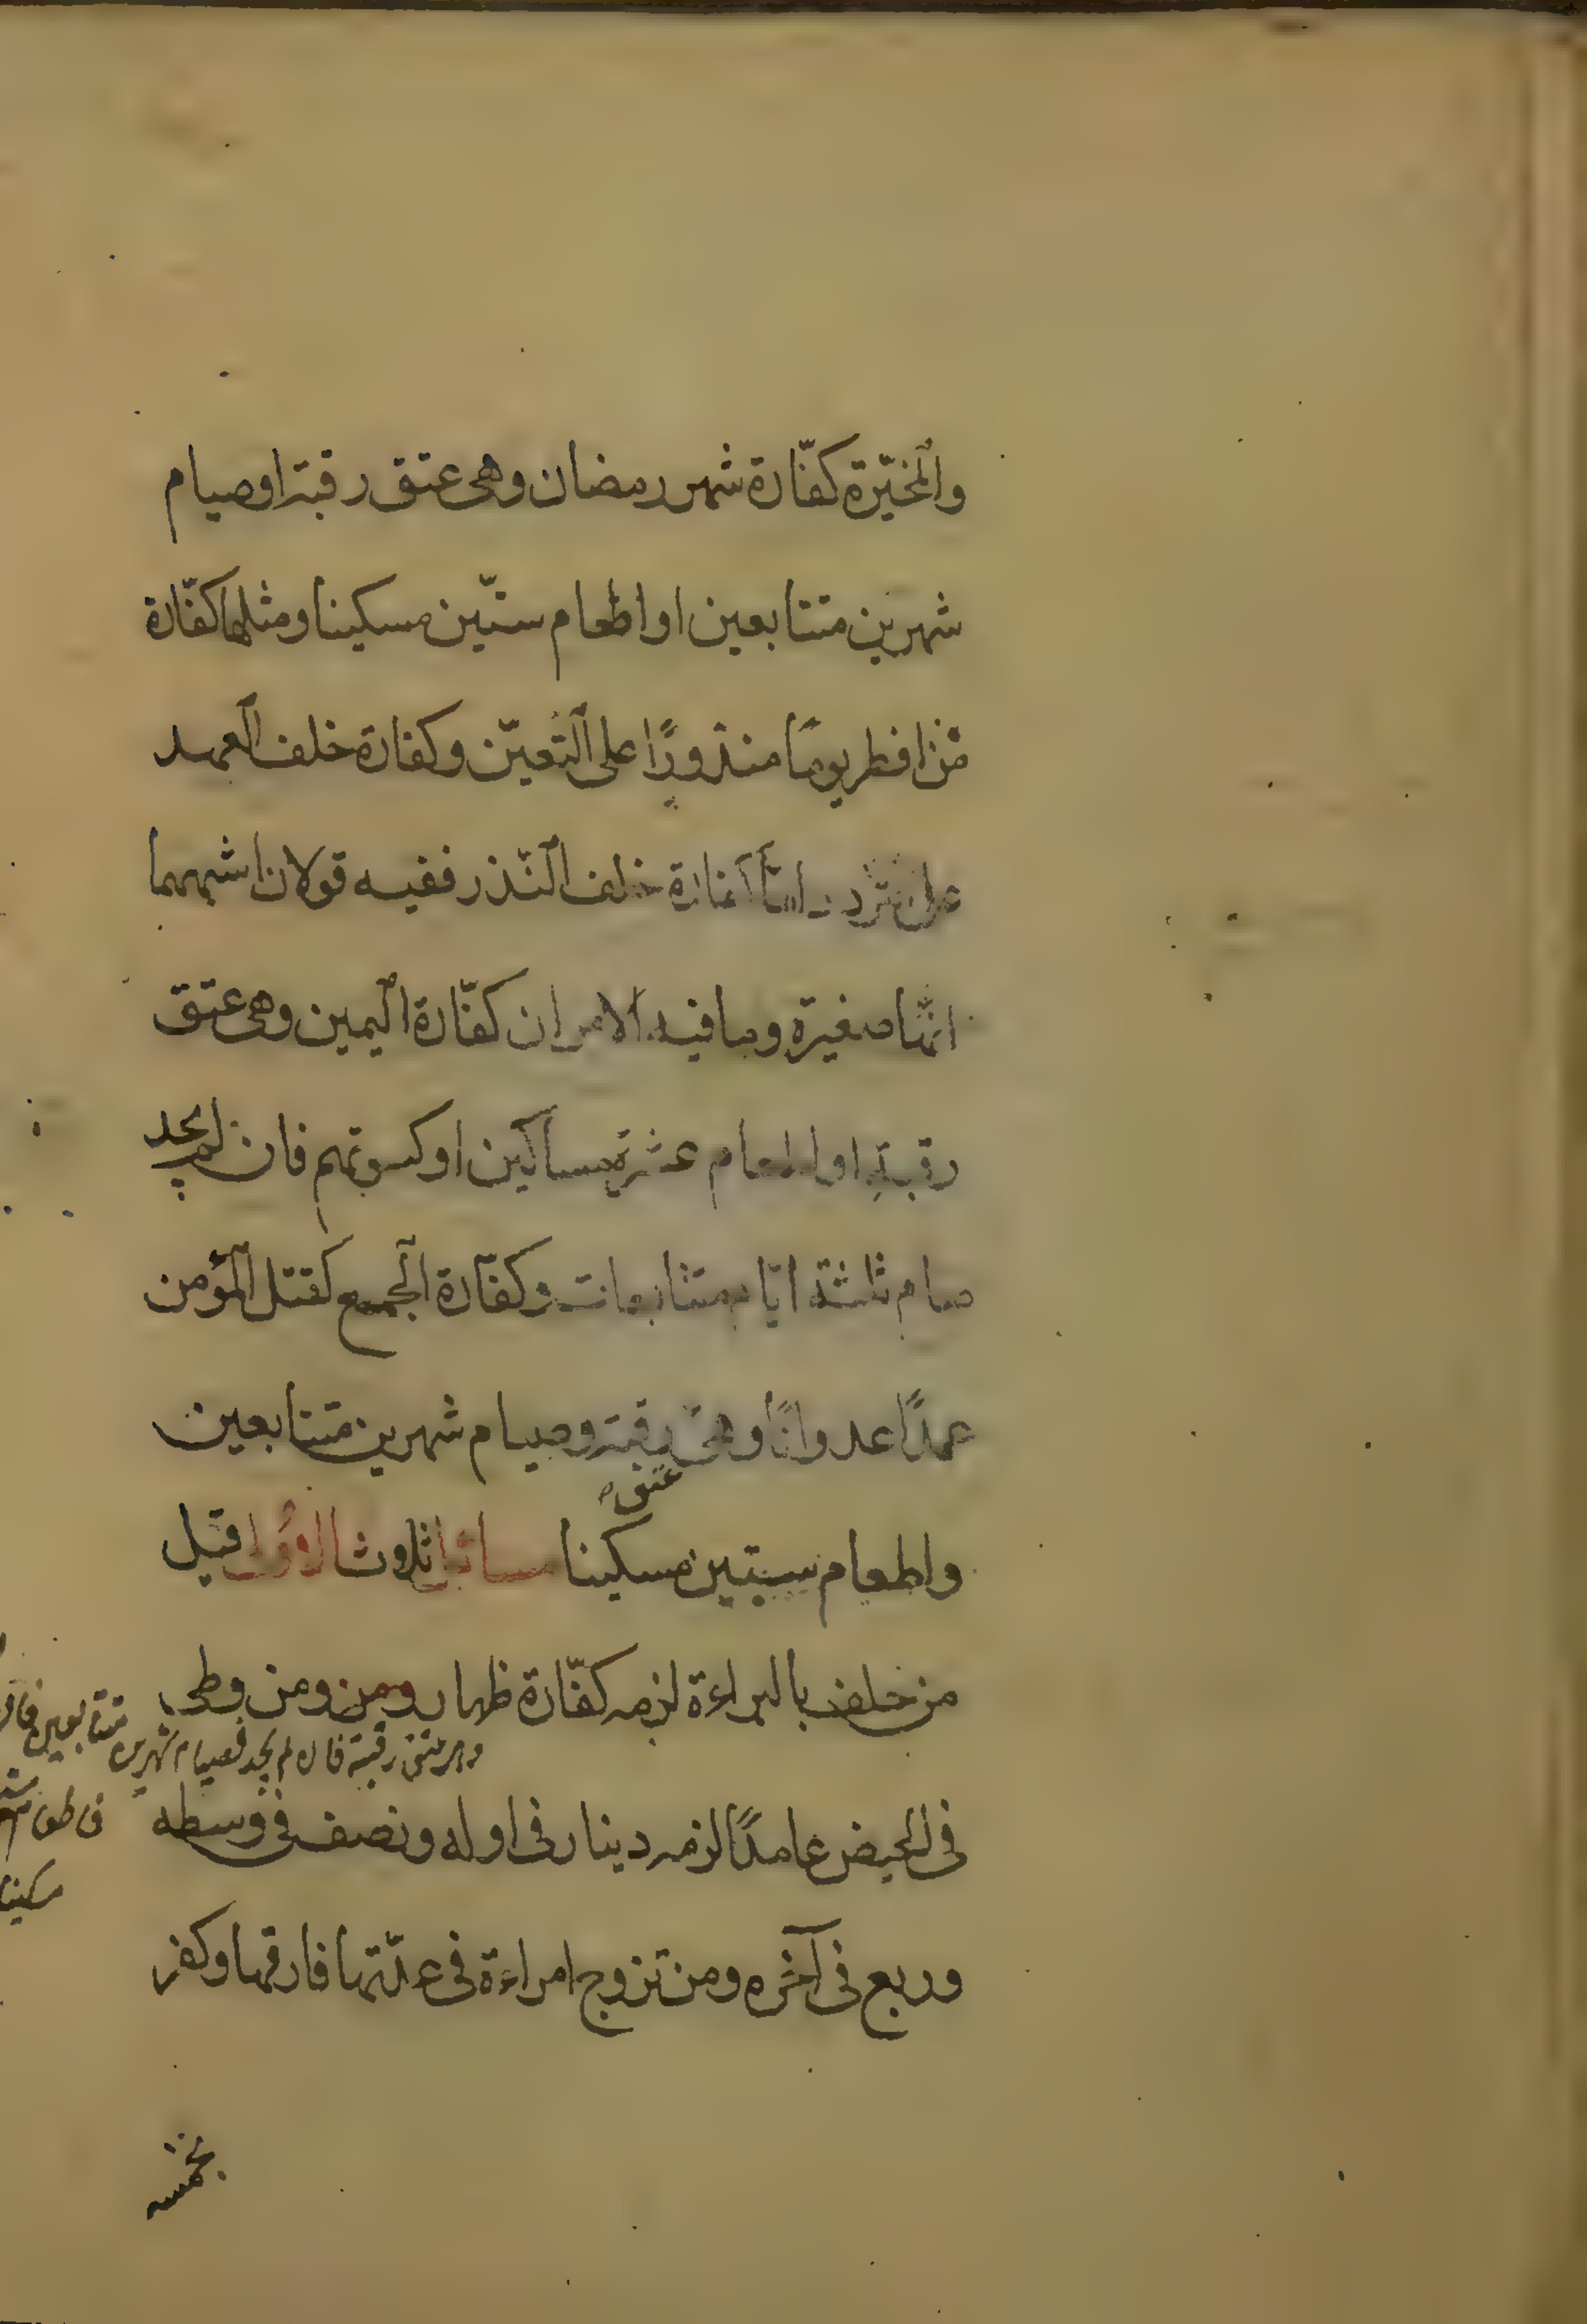 والمخيّرة كفّارة شهر رمضان وهى عتق رقبة او صيام
شهرين متتابعين او اطعام ستّين مسكينا ومثلها كفّارة
من افطر يومًا منذورًا على التعيّن وكفارة خلف العهد
على تردد واما كفارة خلف النّذر ففيه قولان اشبههما
انها صغيرة وما فيه الامران كفّارة اليمين وهى عتق
رقبة او اطعام عشرة مساكين او كسوتهم فان لم يجد
صام ثلثة ايّام متتابعات وكفّارة الجمع كقتل المؤمن
عمدًا عدوانًا وهى رقبة وصيام شهرين متتابعين
عتق
واطعام ستين مسكينا مسائل ثلاث الاولى قيل
من حلف بالبراءة لزمه كفّارة ظهار ومن ومن وطى
وهى عتق رقبة فان لم يجد فصيام شهرين متتابعين فان
فى الحيض عامدًا لزمه دينار فى اوله ونصف فى وسطه
مسكينا
وربع فى آخره ومن تزوج امراءة فى عدّتها فارقها وكفر
بخمسه